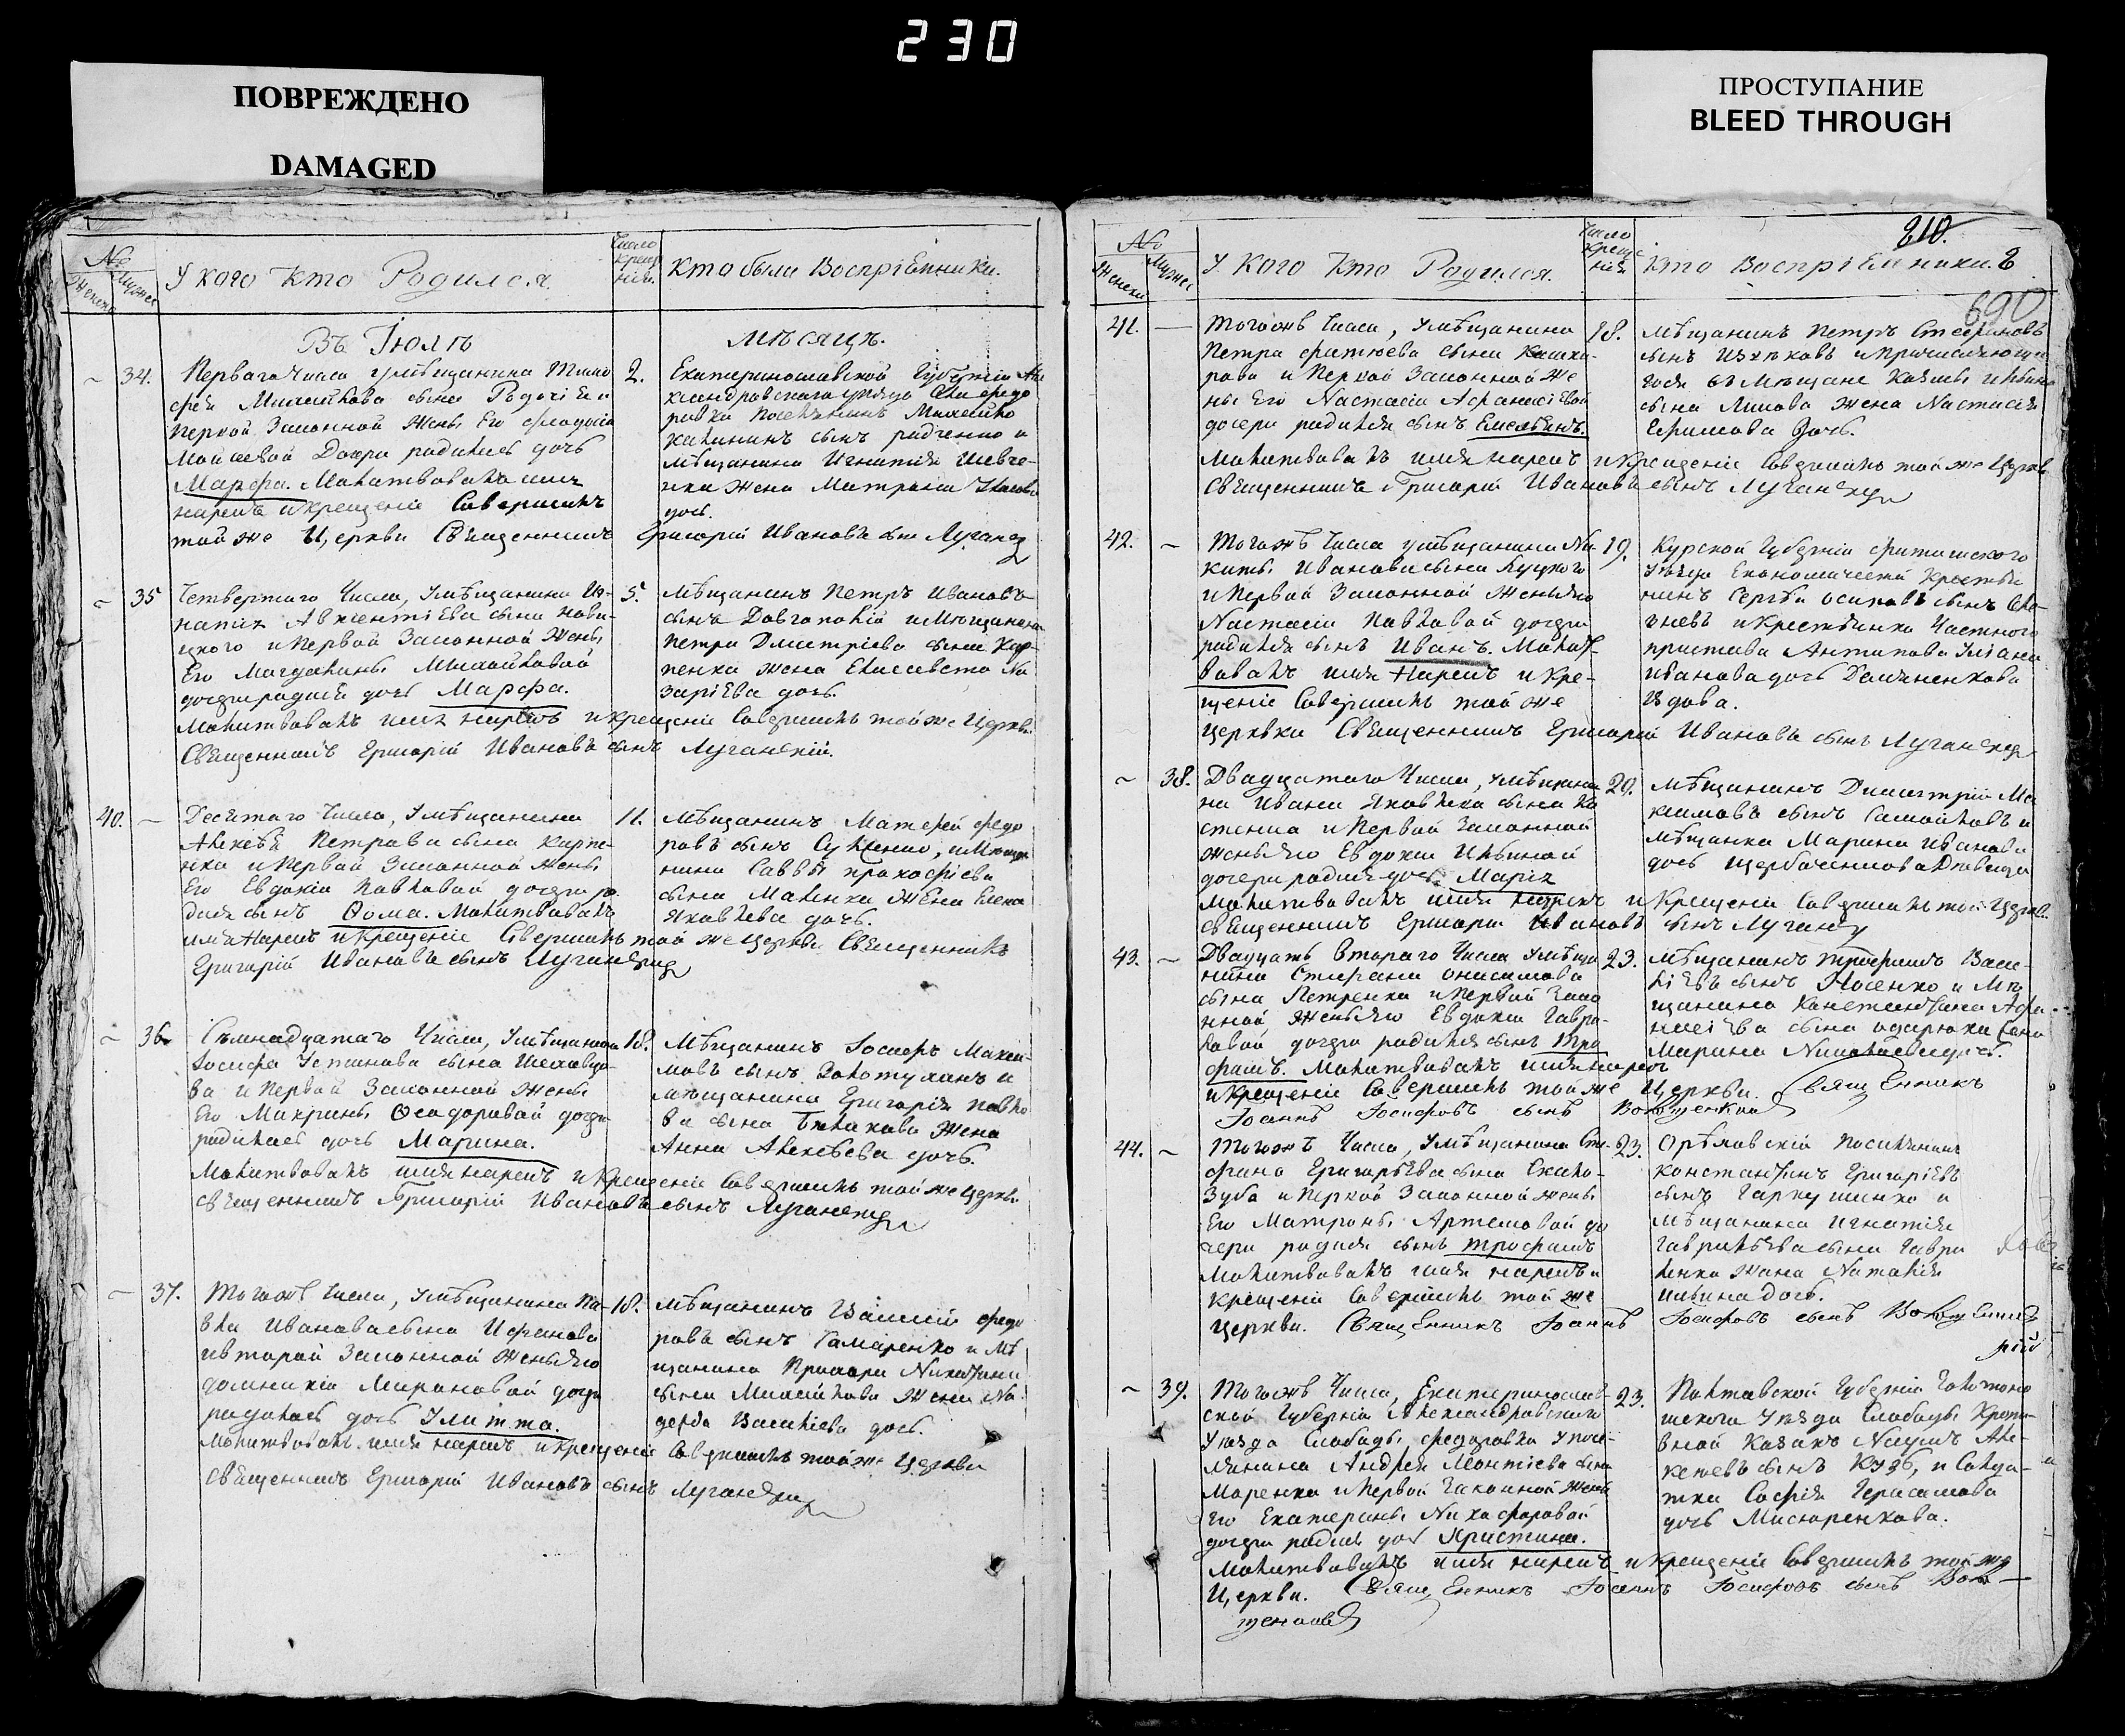 230
ПОВРЕЖДЕНО
DAMAGED
ПРОСТУПАНИЕ
BLEED THROUGH
№
Женска Мужеска
У кого кто Родился.
Число крещенія.
Кто были Воспріемники.
Въ Іюлѣ
мѣсяцѣ.
34.
Перваго числа у мѣщанина Тимо
фея Михайлова сына
первой Законной жены его
Моисеевой дочери родилась дочь
Марфа. Молитвовалъ имя
нареклъ и крещеніе Совершилъ
той же Церкви Священникъ Григорій Ивановъ сынъ Луганскій
2.
Екатеринославской Губерніи Але
ксандровского уѣзда Слободы Федо
ровки поселянинъ Михайло
Калининъ сынъ Радченко и
мѣщанина Игнатія Шевче-
нка жена Матрона
дочь.
35
Четвертаго Числа, У мѣщанина Иг-
натія Авксентіева сына Нови-
цкого и первой Законной жены
Его Магдалины Михайловой
дочери родилась дочь Марфа.
Молитвовалъ имя нареклъ и крещеніе Совершилъ той же Церкви
Священникъ Григорій Ивановъ сынъ Луганскій.
5.
Мѣщанинъ Петръ Ивановъ
сынъ Довгополій и мѣщанина
Петра Дмитріева сына Кар-
пенка жена Елисавета На
заріева дочь.
40.
Десятаго Числа, У мѣщанина
Алексѣя Петрова сына Карпе-
нка и первой Законной жены
Его Евдокіи Павловой дочери ро
дился сынъ Ѳома. Молитвовалъ
имя нареклъ и крещеніе Совершилъ той же Церкви Священникъ
Григорій Ивановъ сынъ Луганскій
11.
Мѣщанинъ Матфей Федо
ровъ сынъ и мѣща
нина Саввы Прокофіева
сына Маленка жена Елена
Яковлева дочь.
36
Семнадцатаго Числа, У мѣщанина
Іосифа Устинова сына
ва и первой Законной жены
Его Макрины Ѳеодоровой дочери
родилась дочь Марина.
Молитвовалъ имя нареклъ и крещеніе Совершилъ той же Церкви
священникъ Григорій Ивановъ сынъ Луганскій
18.
Мѣщанинъ Іосифъ Макси-
мовъ сынъ и
мѣщанина Григорія Павло
ва сына жена
Анна Алексѣева дочь.
37.
Тогожъ числа, У мѣщанина Па-
вла Иванова сына
и второй Законной жены его
Домникіи Мироновой дочери
родилась дочь Улитта.
Молитвовалъ имя нареклъ и крещеніе Совершилъ той же Церкви
Священникъ Григорій Ивановъ сынъ Луганскій
18.
Мѣщанинъ Василій Федо
ровъ сынъ Гамаренко и мѣ
щанина
сына Михайлова жена
Василіева дочь.
210.
690
№
Женска Мужеска
У кого кто Родился.
Число крещенія
кто Воспріемники.
41.
Тогожъ Числа, У мѣщанина
Петра сына Кашка-
рова и первой Законной же
ны Его Настасіи Афанасіевой
дочери родился сынъ Емельянъ.
Молитвовалъ имя нареклъ и Крещеніе Совершилъ той же Церкви
Священникъ Григорій Ивановъ сынъ Луганскій
18.
Мѣщанинъ Петръ Стефановъ
сынъ и причисляюща
гося въ мѣщане
сына жена Настасія
Ефимова дочь.
42.
Тогожъ Числа у мѣщанина Ни
киты Иванова сына Луцкого
и первой Законной жены его
Настасіи Павловой дочери
родился сынъ Иванъ. Молит-
вовалъ имя нареклъ и кре-
щеніе Совершилъ той же
церкви Священникъ Григорій Ивановъ сынъ Луганскій
19.
Курской Губерніи
уѣзда Економической Крестья
нинъ Сергѣй Осиповъ сынъ
и крестьянка Частного
пристава Антипова Уліана
Иванова дочь
Вдова.
38.
Двадцатаго Числа, У мѣщани
на Ивана Яковлева сына Ко
стенка и первой Законной
жены его Евдокіи Ильиной
дочери родилась дочь Марія
Молитвовалъ имя нареклъ и Крещеніе Совершилъ той Церкви
священникъ Григорій Ивановъ сынъ Луганскій
20.
Мѣщанинъ Димитрій Ма
ксимовъ сынъ Самойловъ и
мѣщанка Марина Иванова
дочь
43.
Двадцать втораго Числа У мѣща
нина Стефана Онисимова
сына Петренка и первой Зако
нной жены его Евдокіи Гаври-
ловой дочери родился сынъ Тро
фимъ. Молитвовалъ имя нареклъ
и крещеніе Совершилъ той же Церкви. Священникъ
Іоаннъ Іосифовъ сынъ
23.
Мѣщанинъ Трофимъ Васи-
ліевъ сынъ Носенко и мѣ
щанина Константина Афа-
насіева сына жена
Марина Николаева дочь.
44.
Тогожъ Числа, У мѣщанина Сте-
фана Григорьева сына Скало-
зуба и первой Законной жены
Его Матроны Артемовой до
чери родился сынъ Трофимъ
Молитвовалъ имя нареклъ и
Крещеніе Совершилъ той же
церкви. Священникъ Іоаннъ Іосифовъ сынъ
23.
Орѣховскій поселянинъ
Константинъ Григоріевъ
сынъ Гаркушинко и
мѣщанина Игнатія
Гавриліева сына Гаври
ленка жена Наталія
Ильина дочь.
39.
Тогожъ Числа, Екатеринослав-
ской Губерніи Александровского
Уѣзда Слободы Федоровки У посе-
лянина Андрея Леонтіева сына
Маренка и первой Законной жены
Его Екатерины Никифоровой
дочери родилась дочь Христина.
Молитвовалъ имя нареклъ и Крещеніе Совершилъ той же
Церкви. Священникъ Іоаннъ Іосифовъ сынъ
23.
Полтавской Губерніи Золотоно
шского Уѣзда Слободы Кропи-
вной Казакъ Наумъ Але-
ксѣевъ сынъ Кузь, и Солда-
тка Софія Герасимова
дочь Мисюренкова.